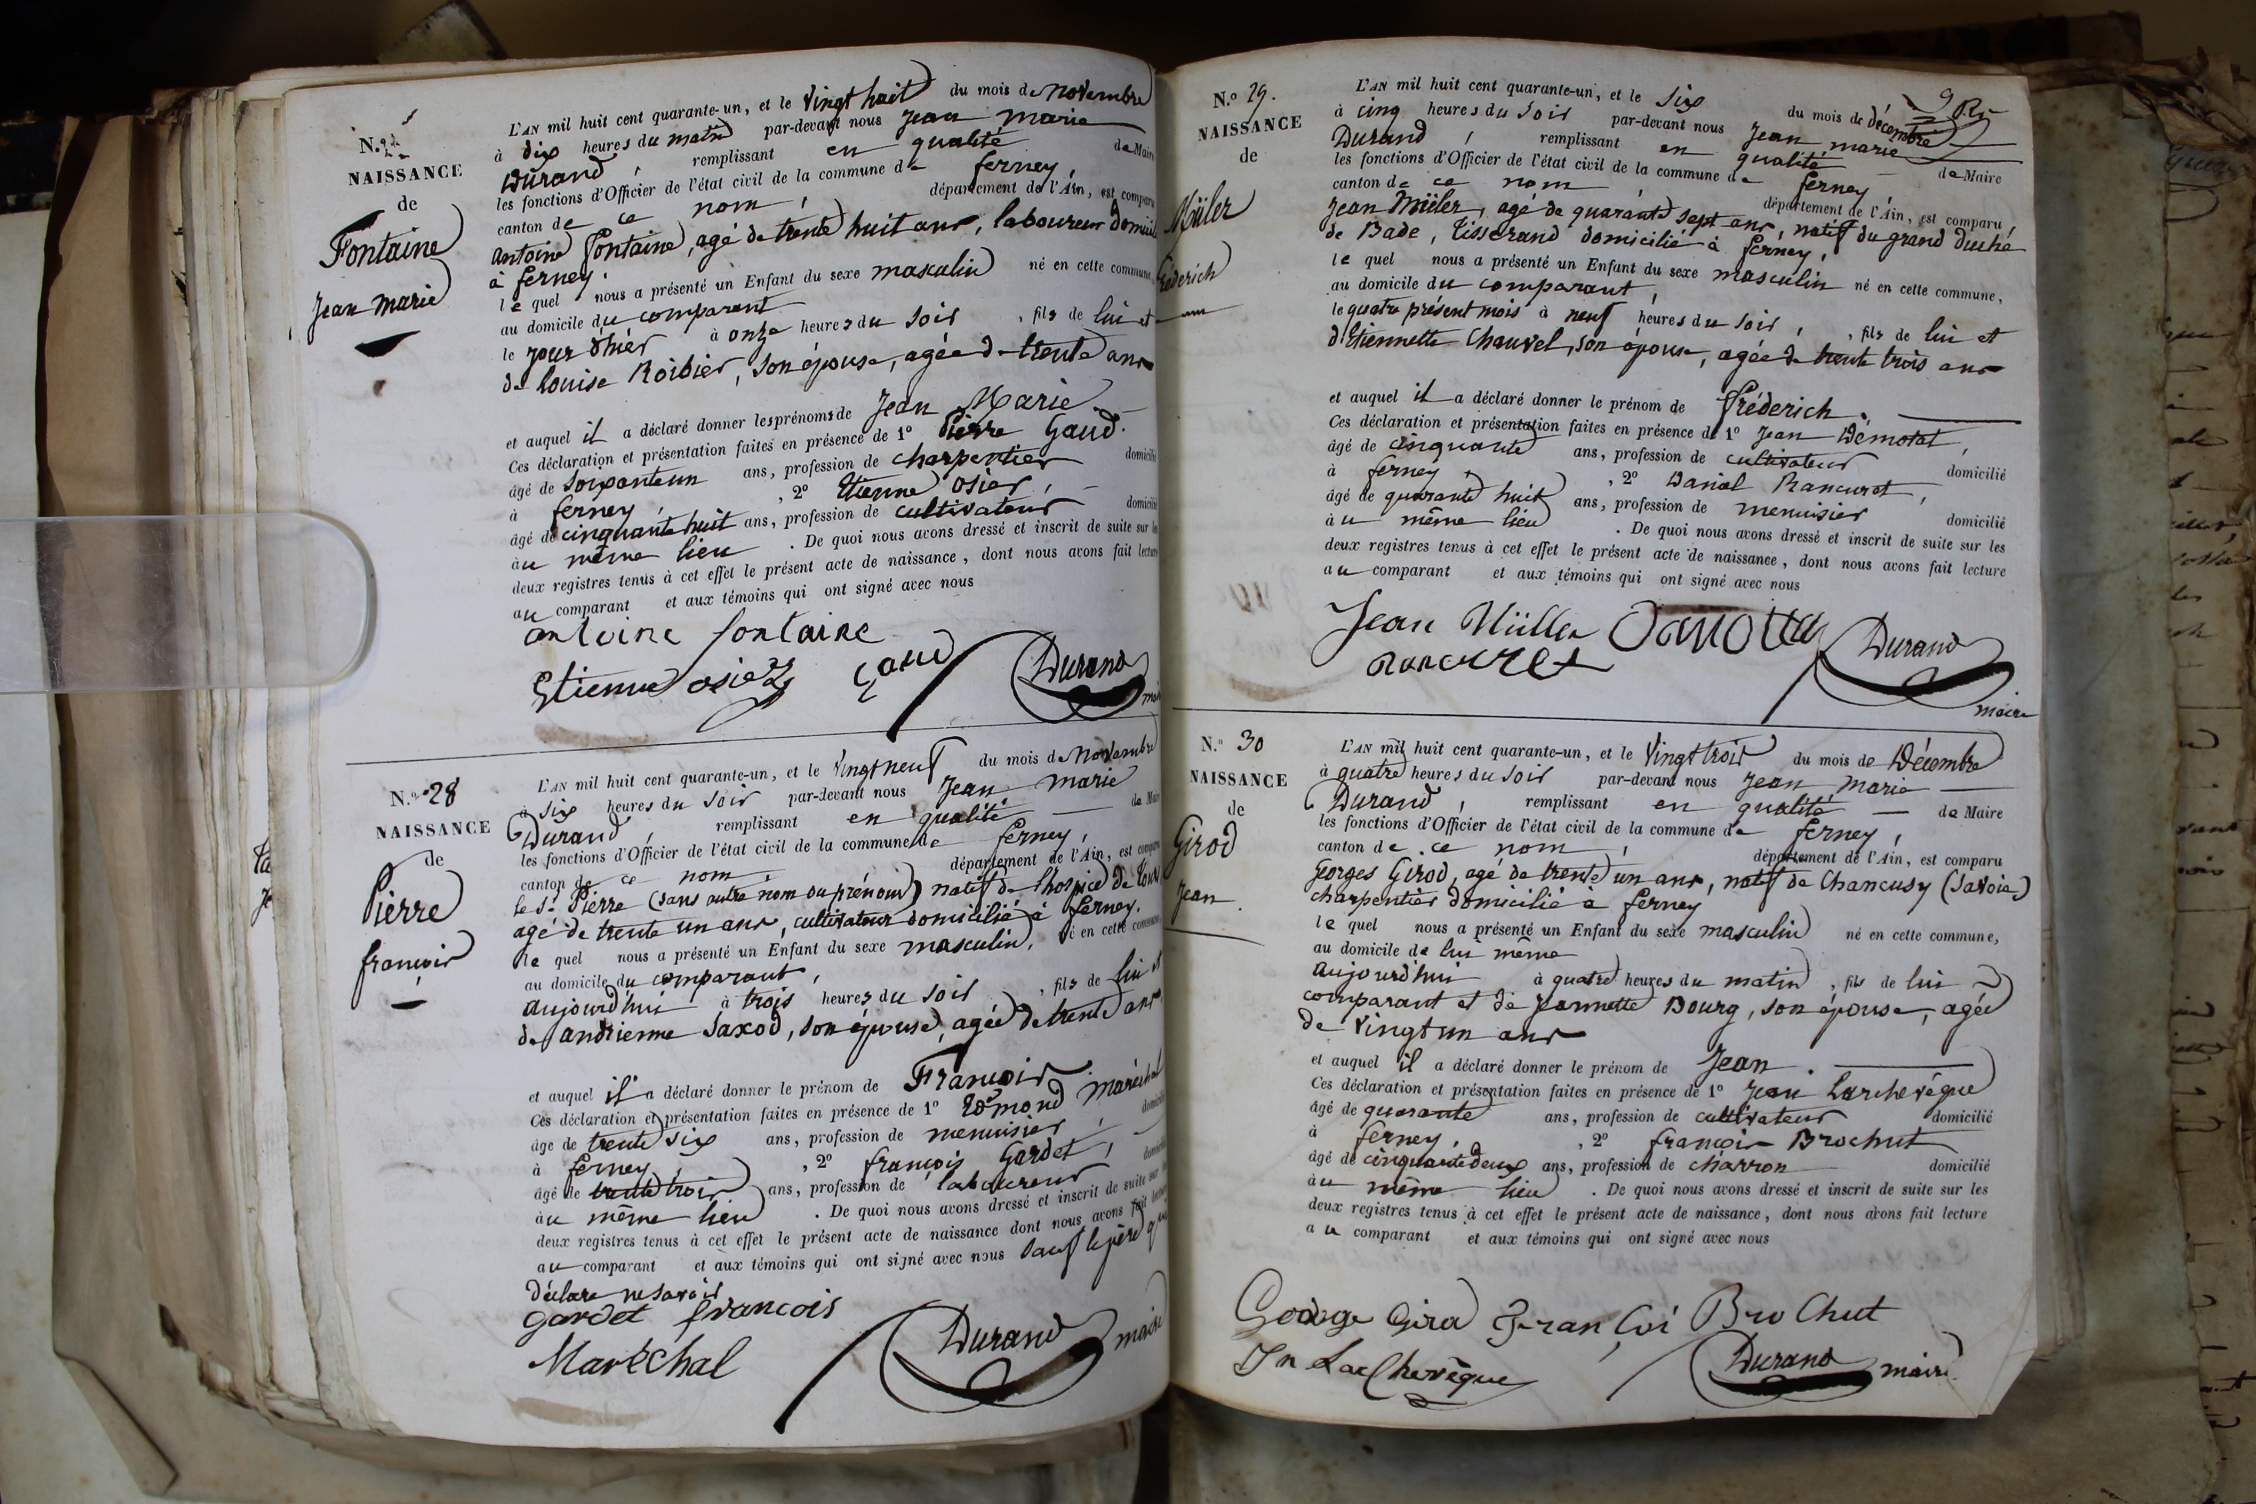 N.º 27
NAISSANCE
de
Fontaine
Jean Marie
L'AN mil huit cent quarante-un, et le Vingt huit du mois de Novembre
à dix heures du matin par-devant nous Jean Marie
Durand, remplissant en qualité de Maire
les fonctions d'Officier de l'état civil de la commune de ferney,
canton de ce nom, département de l'Ain, est comparu
antoine fontaine, agé de trente huit ans, laboureur domicilié
à ferney.
le quel nous a présenté un Enfant du sexe masculin né en cette commune,
au domicile du comparant
le jour d'hier à onze heures du soir, fils de lui et
de louise Roibier, son épouse, agée de trente ans
et auquel il a déclaré donner les prénoms de Jean Marie
Ces déclaration et présentation faites en présence de 1º Pierre Gaud.
âgé de soixante un ans, profession de charpentier domicilié
à ferney, 2º Etienne Osier,
âgé de cinquante huit ans, profession de cultivateur domicilié
au même lieu. De quoi nous avons dressé et inscrit de suite sur les
deux registres tenus à cet effet le présent acte de naissance, dont nous avons fait lecture
au comparant et aux témoins qui ont signé avec nous
antoine fontaine
Etienne osier gaud Durand
N.º 28
NAISSANCE
de
Pierre
françois
L'AN mil huit cent quarante-un, et le Vingt neuf du mois de Novembre
à six heures du soir par-devant nous Jean Marie
Durand, remplissant en qualité de Maire
les fonctions d'Officier de l'état civil de la commune de ferney,
canton de ce nom, département de l'Ain, est comparu
le sr Pierre (sans autre nom ou prénom) natif de l'hospice de
agé de trente un ans, cultivateur domicilié à ferney.
le quel nous a présenté un Enfant du sexe masculin, né en cette commune
au domicile du comparant,
aujourd'hui à trois heures du soir, fils de lui et
de andrienne Saxod, son épouse, agée de trente ans,
et auquel il a déclaré donner le prénom de François
Ces déclaration et présentation faites en présence de 1º Edmond Maréchal
âgé de trente six ans, profession de menuisier, domicilié
à ferney, 2º françois Gardet,
âgé de trente trois ans, profession de laboureur domicilié
au même lieu. De quoi nous avons dressé et inscrit de suite sur les
deux registres tenus à cet effet le présent acte de naissance dont nous avons fait lecture
au comparant et aux témoins qui ont signé avec nous sauf le père qui
déclare ne savoir
gardet francois
Maréchal Durand maire
N.º 29.
NAISSANCE
de
Müler
fréderich
L'AN mil huit cent quarante-un, et le Six du mois de décembre
à cinq heures du soir par-devant nous Jean marie
Durand, remplissant en qualité de Maire
les fonctions d'Officier de l'état civil de la commune de ferney,
canton de ce nom, département de l'Ain, est comparu,
Jean Müler, agé de quarante sept ans, natif du grand duché
de Bade, tisserand domicilié à ferney,
le quel nous a présenté un Enfant du sexe masculin né en cette commune,
au domicile du comparant,
le quatre présent mois à neuf heures du soir, fils de lui et
d'Etiennette Chauvel, son épouse, agée de trente trois ans
et auquel il a déclaré donner le prénom de fréderich.
Ces déclaration et présentation faites en présence de 1º Jean Démotat,
âgé de cinquante ans, profession de cultivateur domicilié
à ferney, 2º Daniel Rancuret,
âgé de quarante huit ans, profession de menuisier domicilié
au même lieu. De quoi nous avons dressé et inscrit de suite sur les
deux registres tenus à cet effet le présent acte de naissance, dont nous avons fait lecture
au comparant et aux témoins qui ont signé avec nous
Jean Müller Durand
rancuret maire
N.º 30
NAISSANCE
de
Girod
Jean.
L'AN mil huit cent quarante-un, et le Vingt trois du mois de Décembre
à quatre heures du soir par-devant nous Jean Marie
Durand, remplissant en qualité de Maire
les fonctions d'Officier de l'état civil de la commune de ferney,
canton de ce nom, département de l'Ain, est comparu
Georges Girod, agé de trente un ans, natif de Chancusy (Savoie)
charpentier domicilié à ferney
le quel nous a présenté un Enfant du sexe masculin né en cette commune,
au domicile de lui même
aujourd'hui à quatre heures du matin, fils de lui
comparant et de jeannette Bourg, son épouse, agée
de vingt un ans
et auquel il a déclaré donner le prénom de Jean.
Ces déclaration et présentation faites en présence de 1º Jean Larchevêque
âgé de quarante ans, profession de cultivateur domicilié
à ferney, 2º françois Brochut
âgé de cinquante deux ans, profession de charron domicilié
au même lieu. De quoi nous avons dressé et inscrit de suite sur les
deux registres tenus à cet effet le présent acte de naissance, dont nous avons fait lecture
au comparant et aux témoins qui ont signé avec nous
George Girod Françoi Brochut
Jn Larchevêque Durand maire